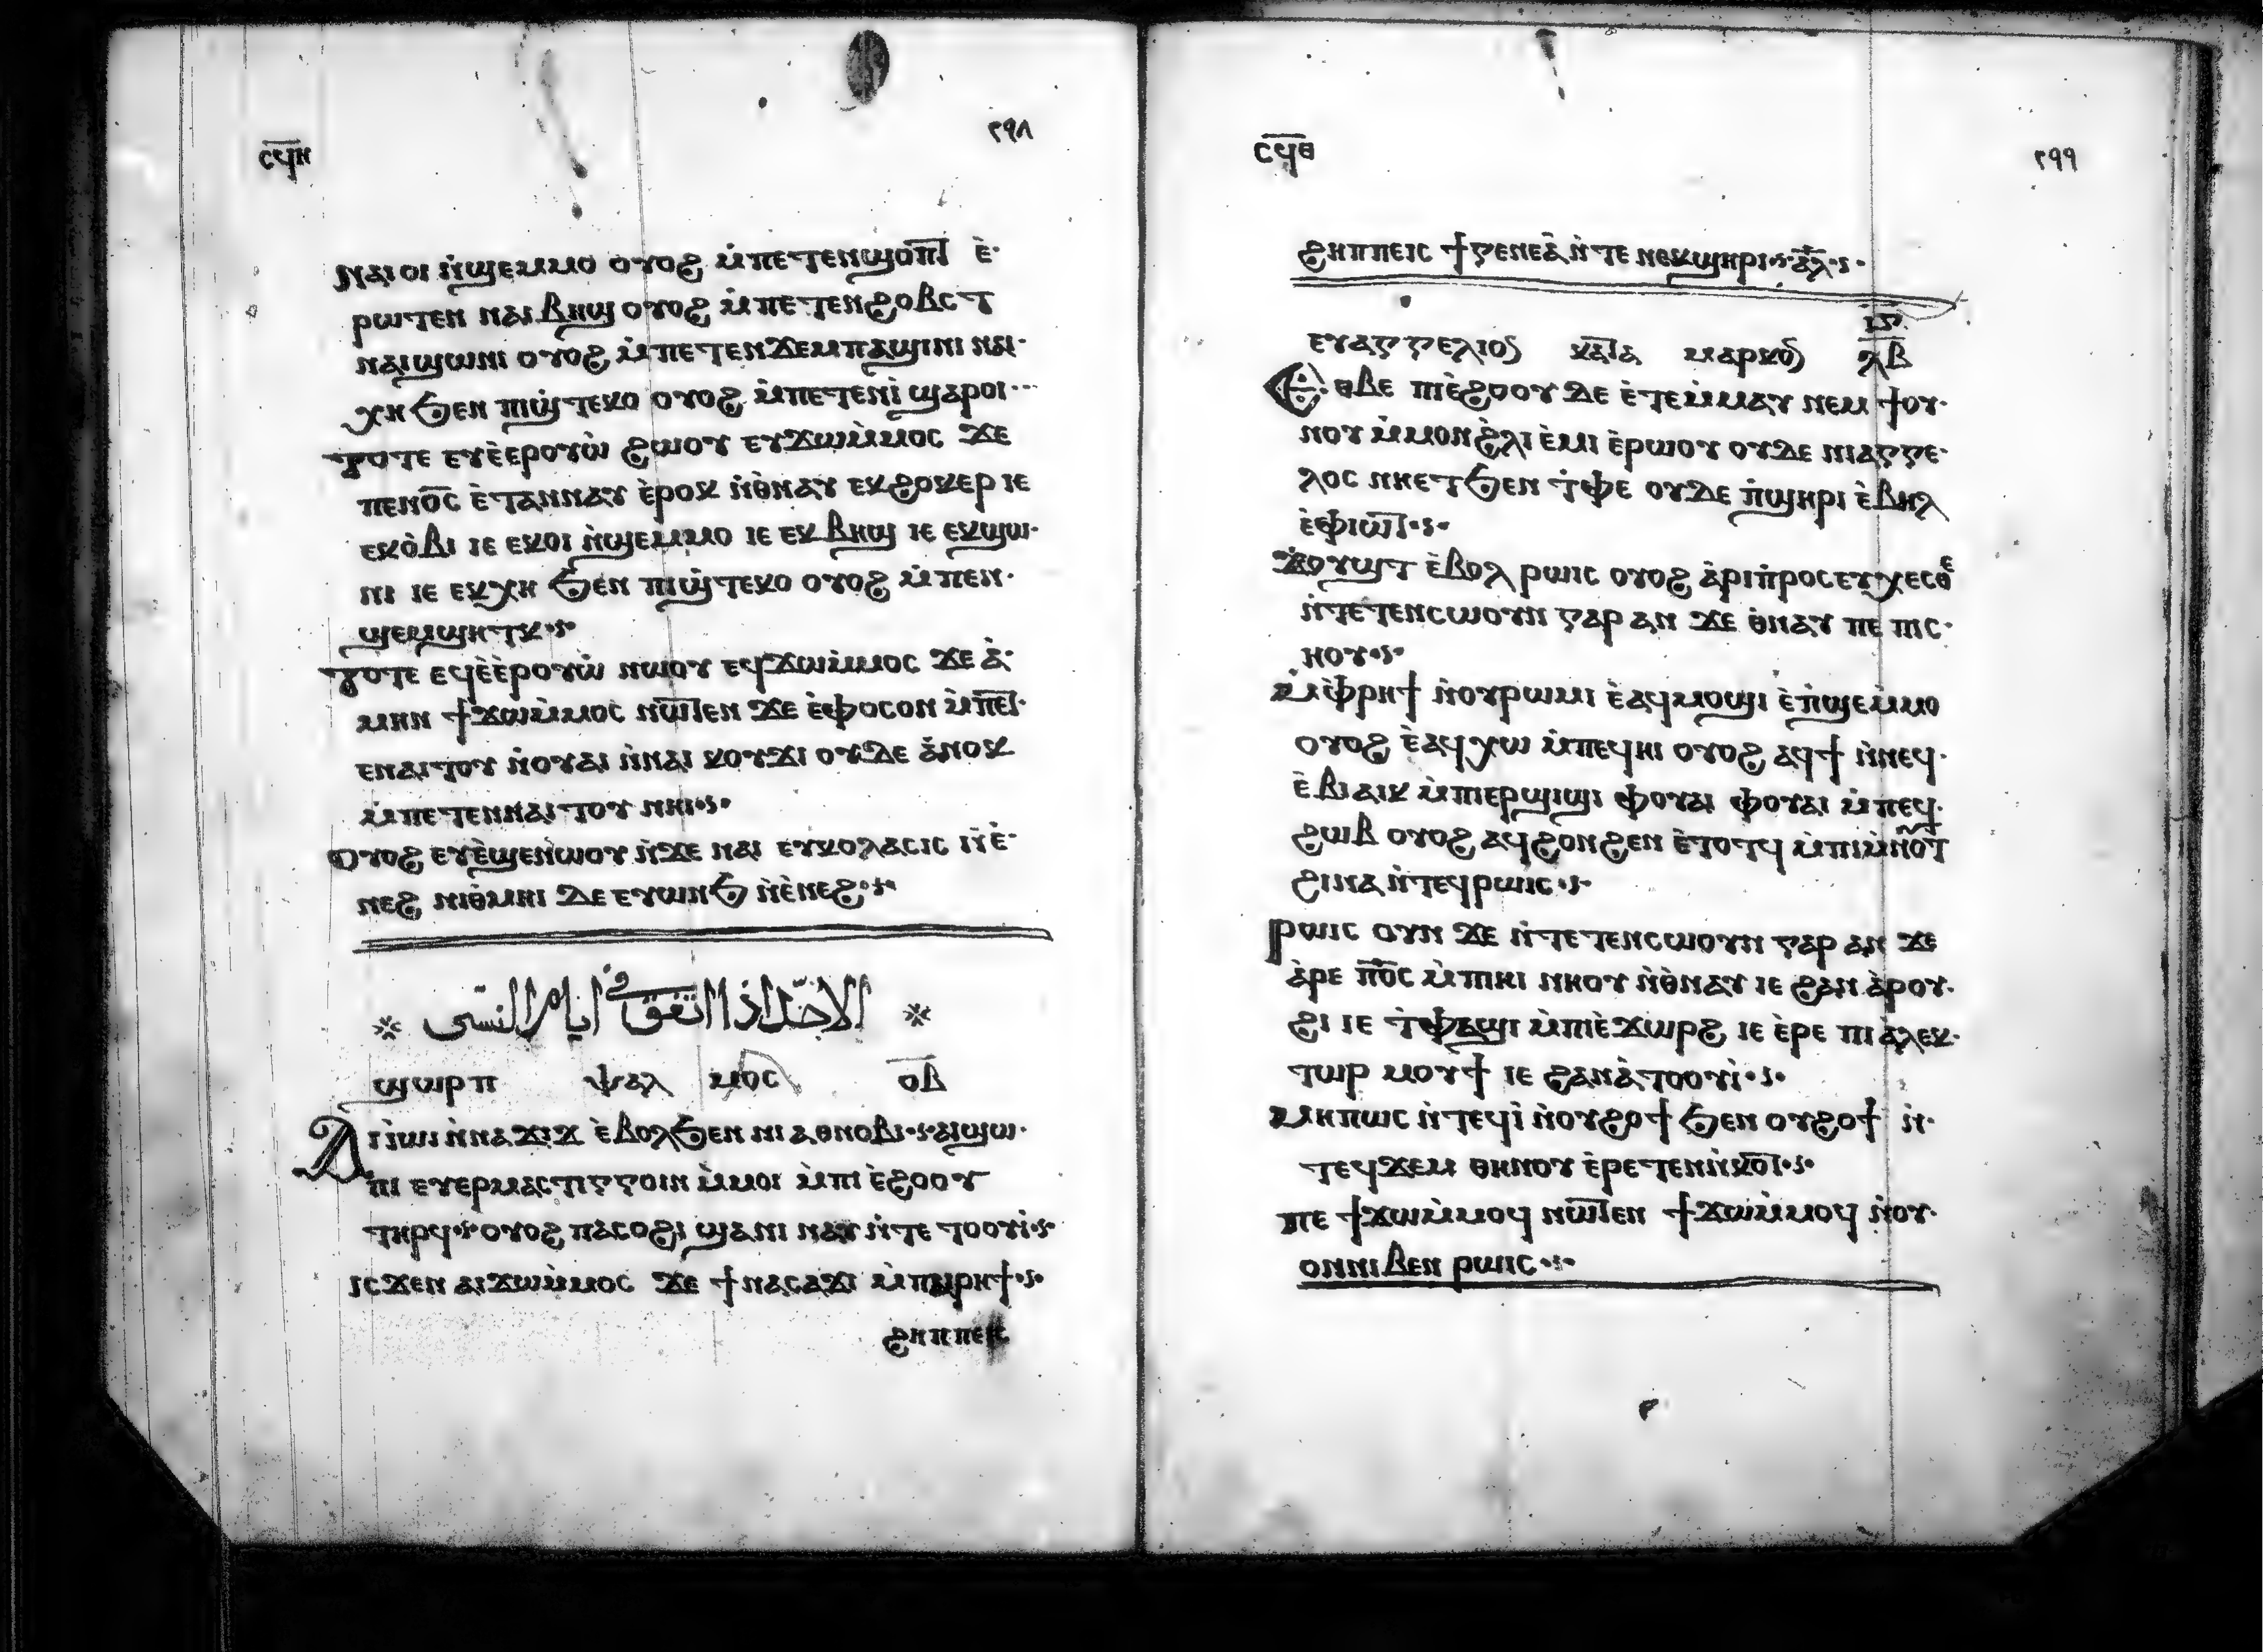 ⲥϥⲏ
٢٩٨
ⲛⲁⲓ ⲟⲓ ⲛ̀ϣⲉⲙⲙⲟ ⲟⲩⲟϩ ⲙ̀ⲡⲉⲧⲉⲛϣⲟⲡⲧ ⲉ̀
ⲣⲱⲧⲉⲛ ⲛⲁⲓ ⲃⲏϣ ⲟⲩⲟϩ ⲙ̀ⲡⲉⲧⲉⲛϩⲟⲃⲥⲧ
ⲛⲁⲓϣⲱⲛⲓ ⲟⲩⲟϩ ⲙ̀ⲡⲉⲧⲉⲛϫⲉⲙⲡⲁϣⲓⲛⲓ ⲛⲁⲓ
ⲭⲏ ϧⲉⲛ ⲡⲓϣ̀ⲧⲉⲕⲟ ⲟⲩⲟϩ ⲙ̀ⲡⲉⲧⲉⲛⲓ̀ ϣⲁⲣⲟⲓ
ⲧⲟⲧⲉ ⲉⲩⲉ̀ⲉⲣⲟⲩⲱ̀ ϩⲱⲟⲩ ⲉⲩϫⲱⲙ̀ⲙⲟⲥ ϫⲉ
ⲡⲉⲛⲟ̅ⲥ̅ ⲉ̀ⲧⲁⲛⲛⲁⲩ ⲉ̀ⲣⲟⲕ ⲛ̀ⲑⲛⲁⲩ ⲉⲕϩⲟⲕⲉⲣ ⲓⲉ
ⲉⲕⲟ̀ⲃⲓ ⲓⲉ ⲉⲕⲟⲓ ⲛ̀ϣⲉⲙⲙⲟ ⲓⲉ ⲉⲕⲃⲏϣ ⲓⲉ ⲉⲕϣⲱ
ⲛⲓ ⲓⲉ ⲉⲕⲭⲏ ϧⲉⲛ ⲡⲓϣ̀ⲧⲉⲕⲟ ⲟⲩⲟϩ ⲙ̀ⲡⲉⲛ
ϣⲉⲙϣⲏⲧⲕ
ⲧⲟⲧⲉ ⲉϥⲉ̀ⲉⲣⲟⲩⲱ̀ ⲛⲱⲟⲩ ⲉϥϫⲱⲙ̀ⲙⲟⲥ ϫⲉ ⲁ̀
ⲙⲏⲛ ϯϫⲱⲙ̀ⲙⲟⲥ ⲛⲱⲧⲉⲛ ϫⲉ ⲉ̀ⲫⲟⲥⲟⲛ ⲙ̀ⲡⲉⲧ
ⲉⲛⲁⲓⲧⲟⲩ ⲛ̀ⲟⲩⲁⲓ ⲛ̀ⲛⲁⲓ ⲕⲟⲩϫⲓ ⲟⲩⲇⲉ ⲁ̀ⲛⲟⲕ
ⲙ̀ⲡⲉⲧⲉⲛⲛⲁⲓⲧⲟⲩ ⲛⲏⲓ
ⲟⲩⲟϩ ⲉⲩⲉ̀ϣⲉⲛⲱⲟⲩ ⲛ̀ϫⲉ ⲛⲁⲓ ⲉⲩⲕⲟⲗⲁⲥⲓⲥ ⲛ̀ⲉ̀
ⲛⲉϩ ⲛⲓⲑ̀ⲙⲏⲓ ⲇⲉ ⲉⲩⲱⲛϧ ⲛ̀ⲉ̀ⲛⲉϩ
الاحد اذا اتفق في ايام النسى
ϣⲱⲣⲡ ⲯⲁⲗ ⲙⲟⲥ ⲟ̅ⲃ̅
ⲁⲓⲓ̀ⲱⲓ ⲛ̀ⲛⲁϫⲓϫ ⲉ̀ⲃⲟⲗϧⲉⲛ ⲛⲓⲁⲑⲛⲟⲃⲓ ⲁⲓϣⲱ
ⲡⲓ ⲉⲩⲉⲣⲙⲁⲥⲧⲓⲅⲅⲟⲓⲛ ⲙ̀ⲙⲟⲓ ⲙ̀ⲡⲓⲉ̀ϩⲟⲟⲩ
ⲧⲏⲣϥ ⲟⲩⲟϩ ⲡⲁⲥⲟϩⲓ ϣⲁⲛⲓ ⲛⲁⲩ ⲛ̀ⲧⲉ ⲧⲟⲟⲩⲓ̀
ⲓⲥϫⲉⲛ ⲁⲓϫⲱⲙ̀ⲙⲟⲥ ϫⲉ ϯⲛⲁⲥⲁϫⲓ ⲙ̀ⲡⲁⲓⲣⲏϯ
ϩⲏⲡⲡⲉⲓⲥ
ⲥϥⲑ
٢٩٩
ϩⲏⲡⲡⲉⲓⲥ ϯⲅⲉⲛⲉⲁ̀ ⲛ̀ⲧⲉ ⲛⲉⲕϣⲏⲣⲓ ⲁ̅ⲗ̅
ⲓ̅ⲋ̅
ⲉⲩⲁⲅⲅⲉⲗⲓⲟⲥ ⲕⲁⲧⲁ ⲙⲁⲣⲕⲟⲥ ⲗ̅ⲃ̅
ⲉⲑⲃⲉ ⲡⲓⲉ̀ϩⲟⲟⲩ ⲇⲉ ⲉ̀ⲧⲉⲙ̀ⲙⲁⲩ ⲛⲉⲙ ϯⲟⲩ
ⲛⲟⲩ ⲙ̀ⲙⲟⲛϩ̀ⲗⲓ ⲉ̀ⲙⲓ ⲉ̀ⲣⲱⲟⲩ ⲟⲩⲇⲉ ⲛⲓⲁⲅⲅⲉ
ⲗⲟⲥ ⲛⲏⲉⲧϧⲉⲛ ⲧ̀ⲫⲉ ⲟⲩⲇⲉ ⲡ̀ϣⲏⲣⲓ ⲉ̀ⲃⲏⲗ
ⲉ̀ⲫⲓⲱⲧ
ϫⲟⲩϣⲧ ⲉ̀ⲃⲟⲗ ⲣⲱⲓⲥ ⲟⲩⲟϩ ⲁ̀ⲣⲓⲡ̀ⲣⲟⲥⲉⲩⲭⲉⲥⲑⲉ
ⲛ̀ⲧⲉⲧⲉⲛⲥⲱⲟⲩⲛ ⲅⲁⲣ ⲁⲛ ϫⲉ ⲑ̀ⲛⲁⲩ ⲡⲉ ⲡⲓⲥ
ⲏⲟⲩ
ⲙ̀ⲫ̀ⲣⲏϯ ⲛ̀ⲟⲩⲣⲱⲙⲓ ⲉ̀ⲁϥⲙⲟϣⲓ ⲉ̀ⲡ̀ϣⲉⲙ̀ⲙⲟ
ⲟⲩⲟϩ ⲉ̀ⲁϥⲭⲱ ⲙ̀ⲡⲉϥⲏⲓ ⲟⲩⲟϩ ⲁϥϯ ⲛ̀ⲛⲉϥ
ⲉ̀ⲃⲓⲁⲓⲕ ⲙ̀ⲡⲓⲉⲣϣⲓϣⲓ ⲫⲟⲩⲁⲓ ⲫⲟⲩⲁⲓ ⲙ̀ⲡⲉϥ
ϩⲱⲃ ⲟⲩⲟϩ ⲁϥϩⲟⲛϩⲉⲛ ⲉ̀ⲧⲟⲧϥ ⲙ̀ⲡⲓⲙ̀ⲛⲟⲩⲧ
ϩⲓⲛⲁ ⲛ̀ⲧⲉϥⲣⲱⲓⲥ
ⲣⲱⲓⲥ ⲟⲩⲛ ϫⲉ ⲛ̀ⲧⲉⲧⲉⲛⲥⲱⲟⲩⲛ ⲅⲁⲣ ⲁⲛ ϫⲉ
ⲁ̀ⲣⲉ ⲡ̅ⲟ̅ⲥ̅ ⲙ̀ⲡⲓⲏⲓ ⲛⲏⲟⲩ ⲛ̀ⲑ̀ⲛⲁⲩ ⲓⲉ ϩⲁⲛ ⲁ̀ⲣⲟⲩ
ϩⲓ ⲓⲉ ⲧ̀ⲫⲁϣⲓ ⲙ̀ⲡⲓⲉ̀ϫⲱⲣϩ ⲓⲉ ⲉ̀ⲣⲉ ⲡⲓⲁ̀ⲗⲉⲕ
ⲧⲱⲣ ⲙⲟⲩϯ ⲓⲉ ϩⲁⲛⲁ̀ⲧⲟⲟⲩⲓ̀
ⲙⲏⲡⲱⲥ ⲛ̀ⲧⲉϥⲓ̀ ⲛ̀ⲟⲩϩⲟϯ ϧⲉⲛ ⲟⲩϩⲟϯ ⲛ̀
ⲧⲉϥϫⲉⲙ ⲑⲏⲛⲟⲩ ⲉ̀ⲣⲉⲧⲉⲛⲛ̀ⲕⲟⲧ
ⲡⲉ ϯϫⲱⲙ̀ⲙⲟϥ ⲛⲱⲧⲉⲛ ϯϫⲱⲙ̀ⲙⲟϥ ⲛ̀ⲟⲩ
ⲟⲛⲛⲓⲃⲉⲛ ⲣⲱⲓⲥ